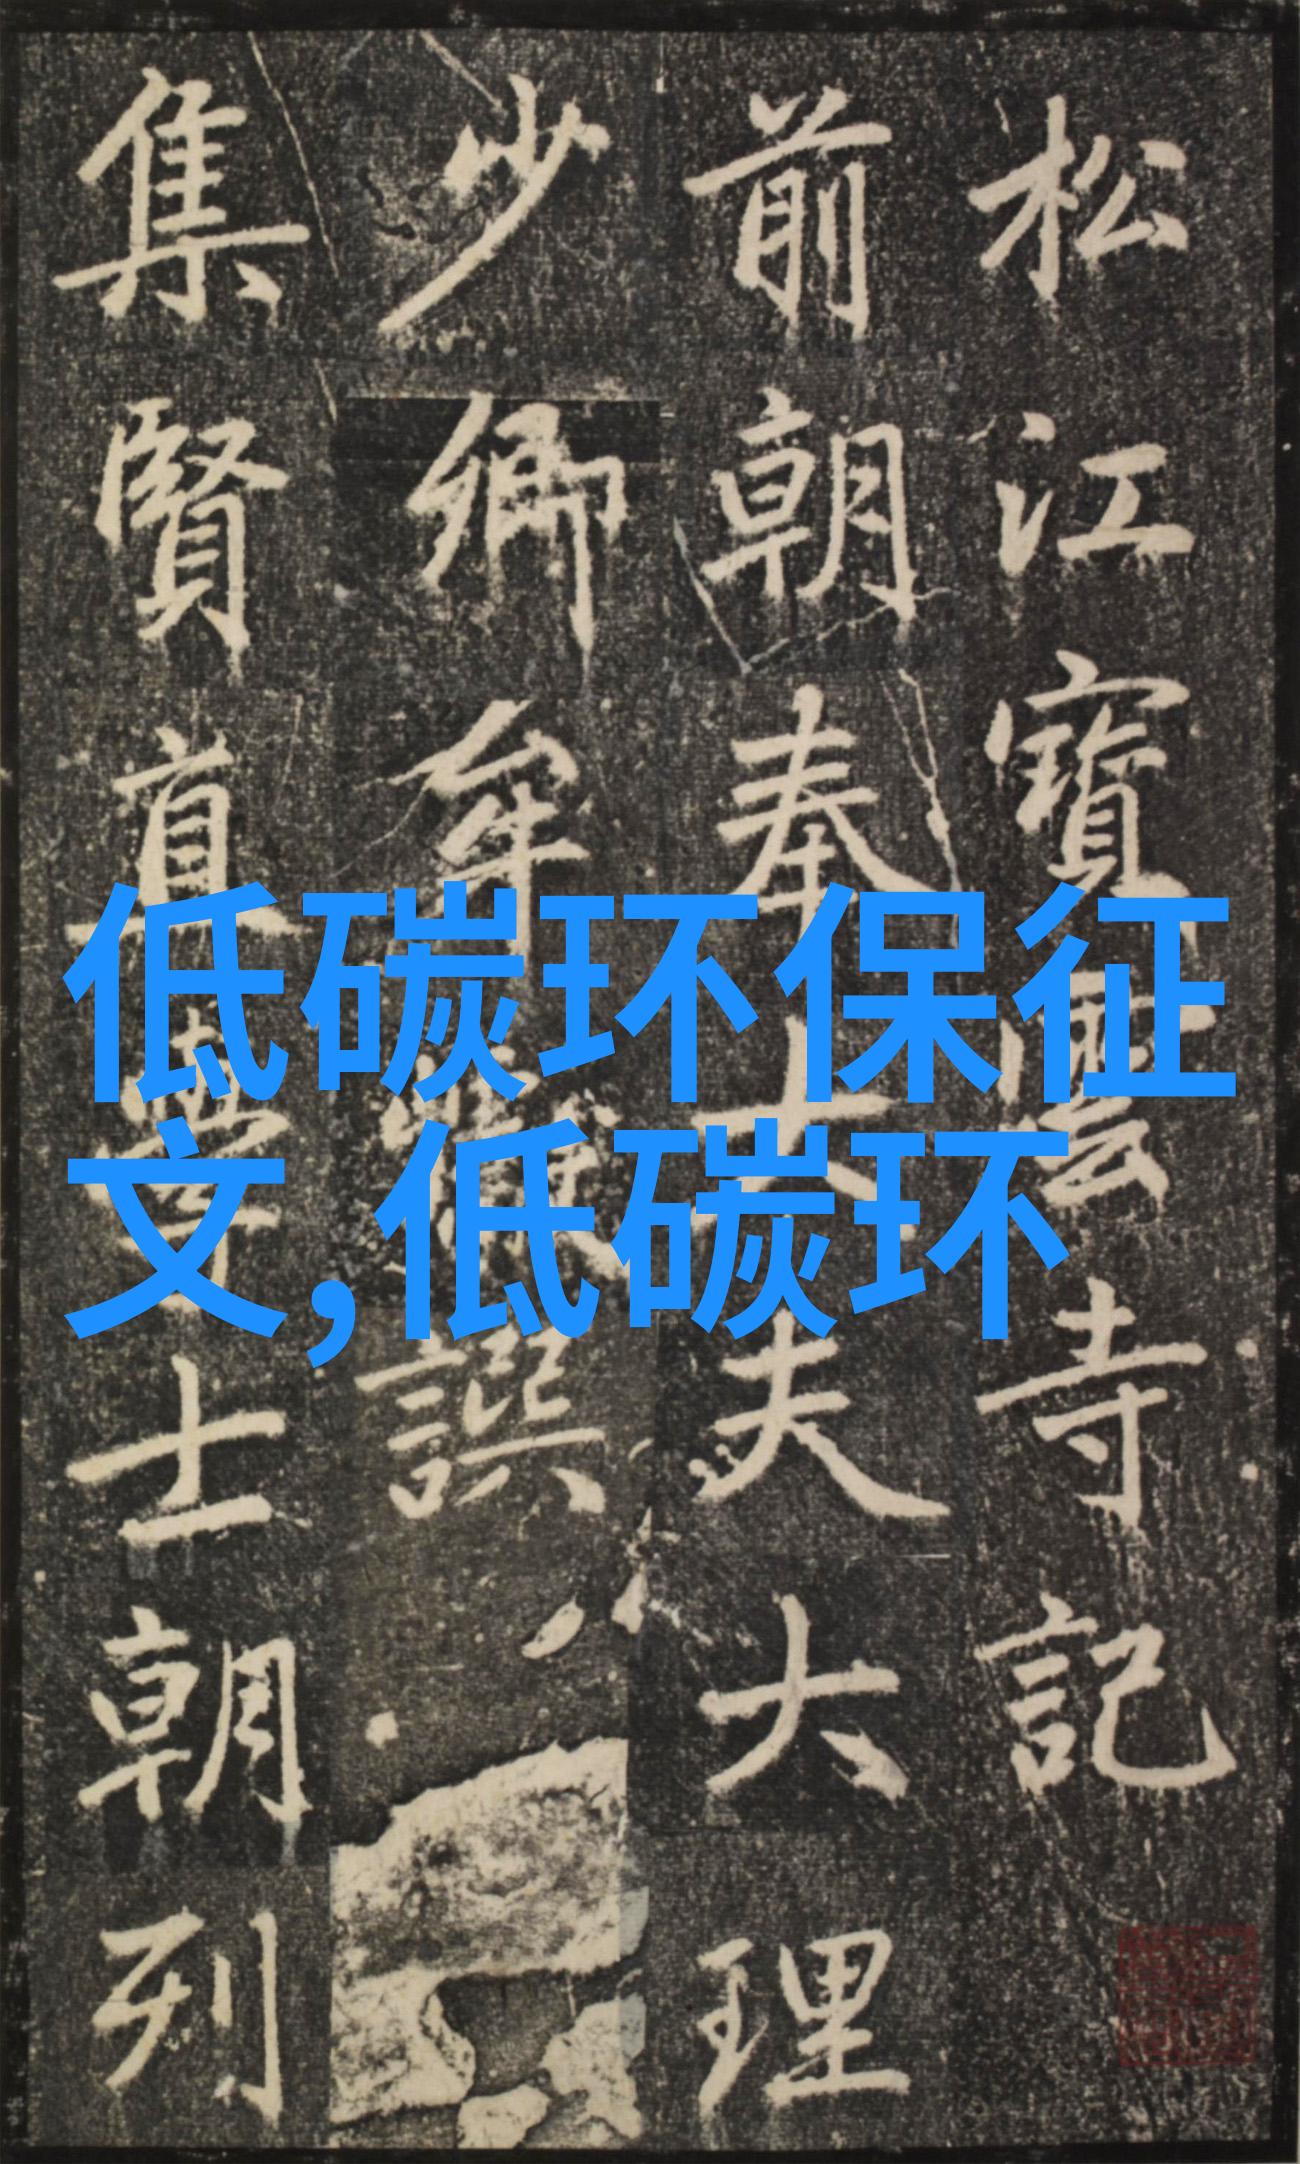 松江寶雲寺記
前朝奉大夫大理
少卿牟巘譔
集賢直學士朝列
低碳环保征
文,低碳环